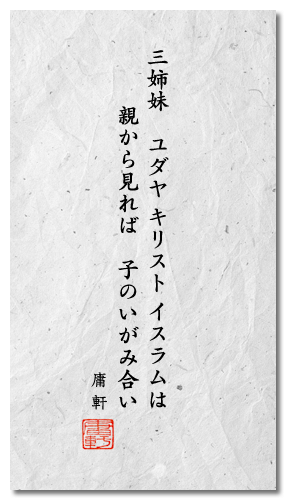 三姉妹　ユダヤ キリスト イスラムは
親から見れば　子のいがみ合い
庸軒